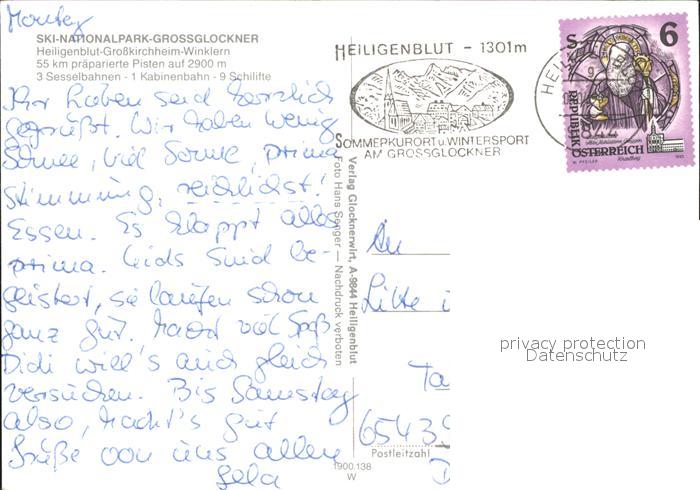 Montag
SKI-NATIONALPARK-GROSSGLOCKNER
Heiligenblut-Großkirchheim-Winklern
55 km präparierte Pisten auf 2900 m
3 Sesselbahnen - 1 Kabinenbahn - 9 Schilifte
Ihr Lieben seid herzlich
gegrüßt. Wir haben wenig
Schnee, viel Sonne, prima
Stimmung, reichlichst!
Essen. Es klappt alles
prima. Kids sind be-
geistert, sie laufen schon
ganz gut. Macht viel Spaß.
Didi will's auch gleich
versuchen. Bis Samstag
also, macht's gut
Grüße von uns allen
Gela
HEILIGENBLUT - 1301m
SOMMERKURORT u. WINTERSPORT
AM GROSSGLOCKNER
HEILI
6
REPUBLIK
ÖSTERREICH
Verlag Glocknerwirt, A-9844 Heiligenblut
Foto Hans Senger — Nachdruck verboten
An
65439
Postleitzahl
1900.138
W
privacy protection
Datenschutz